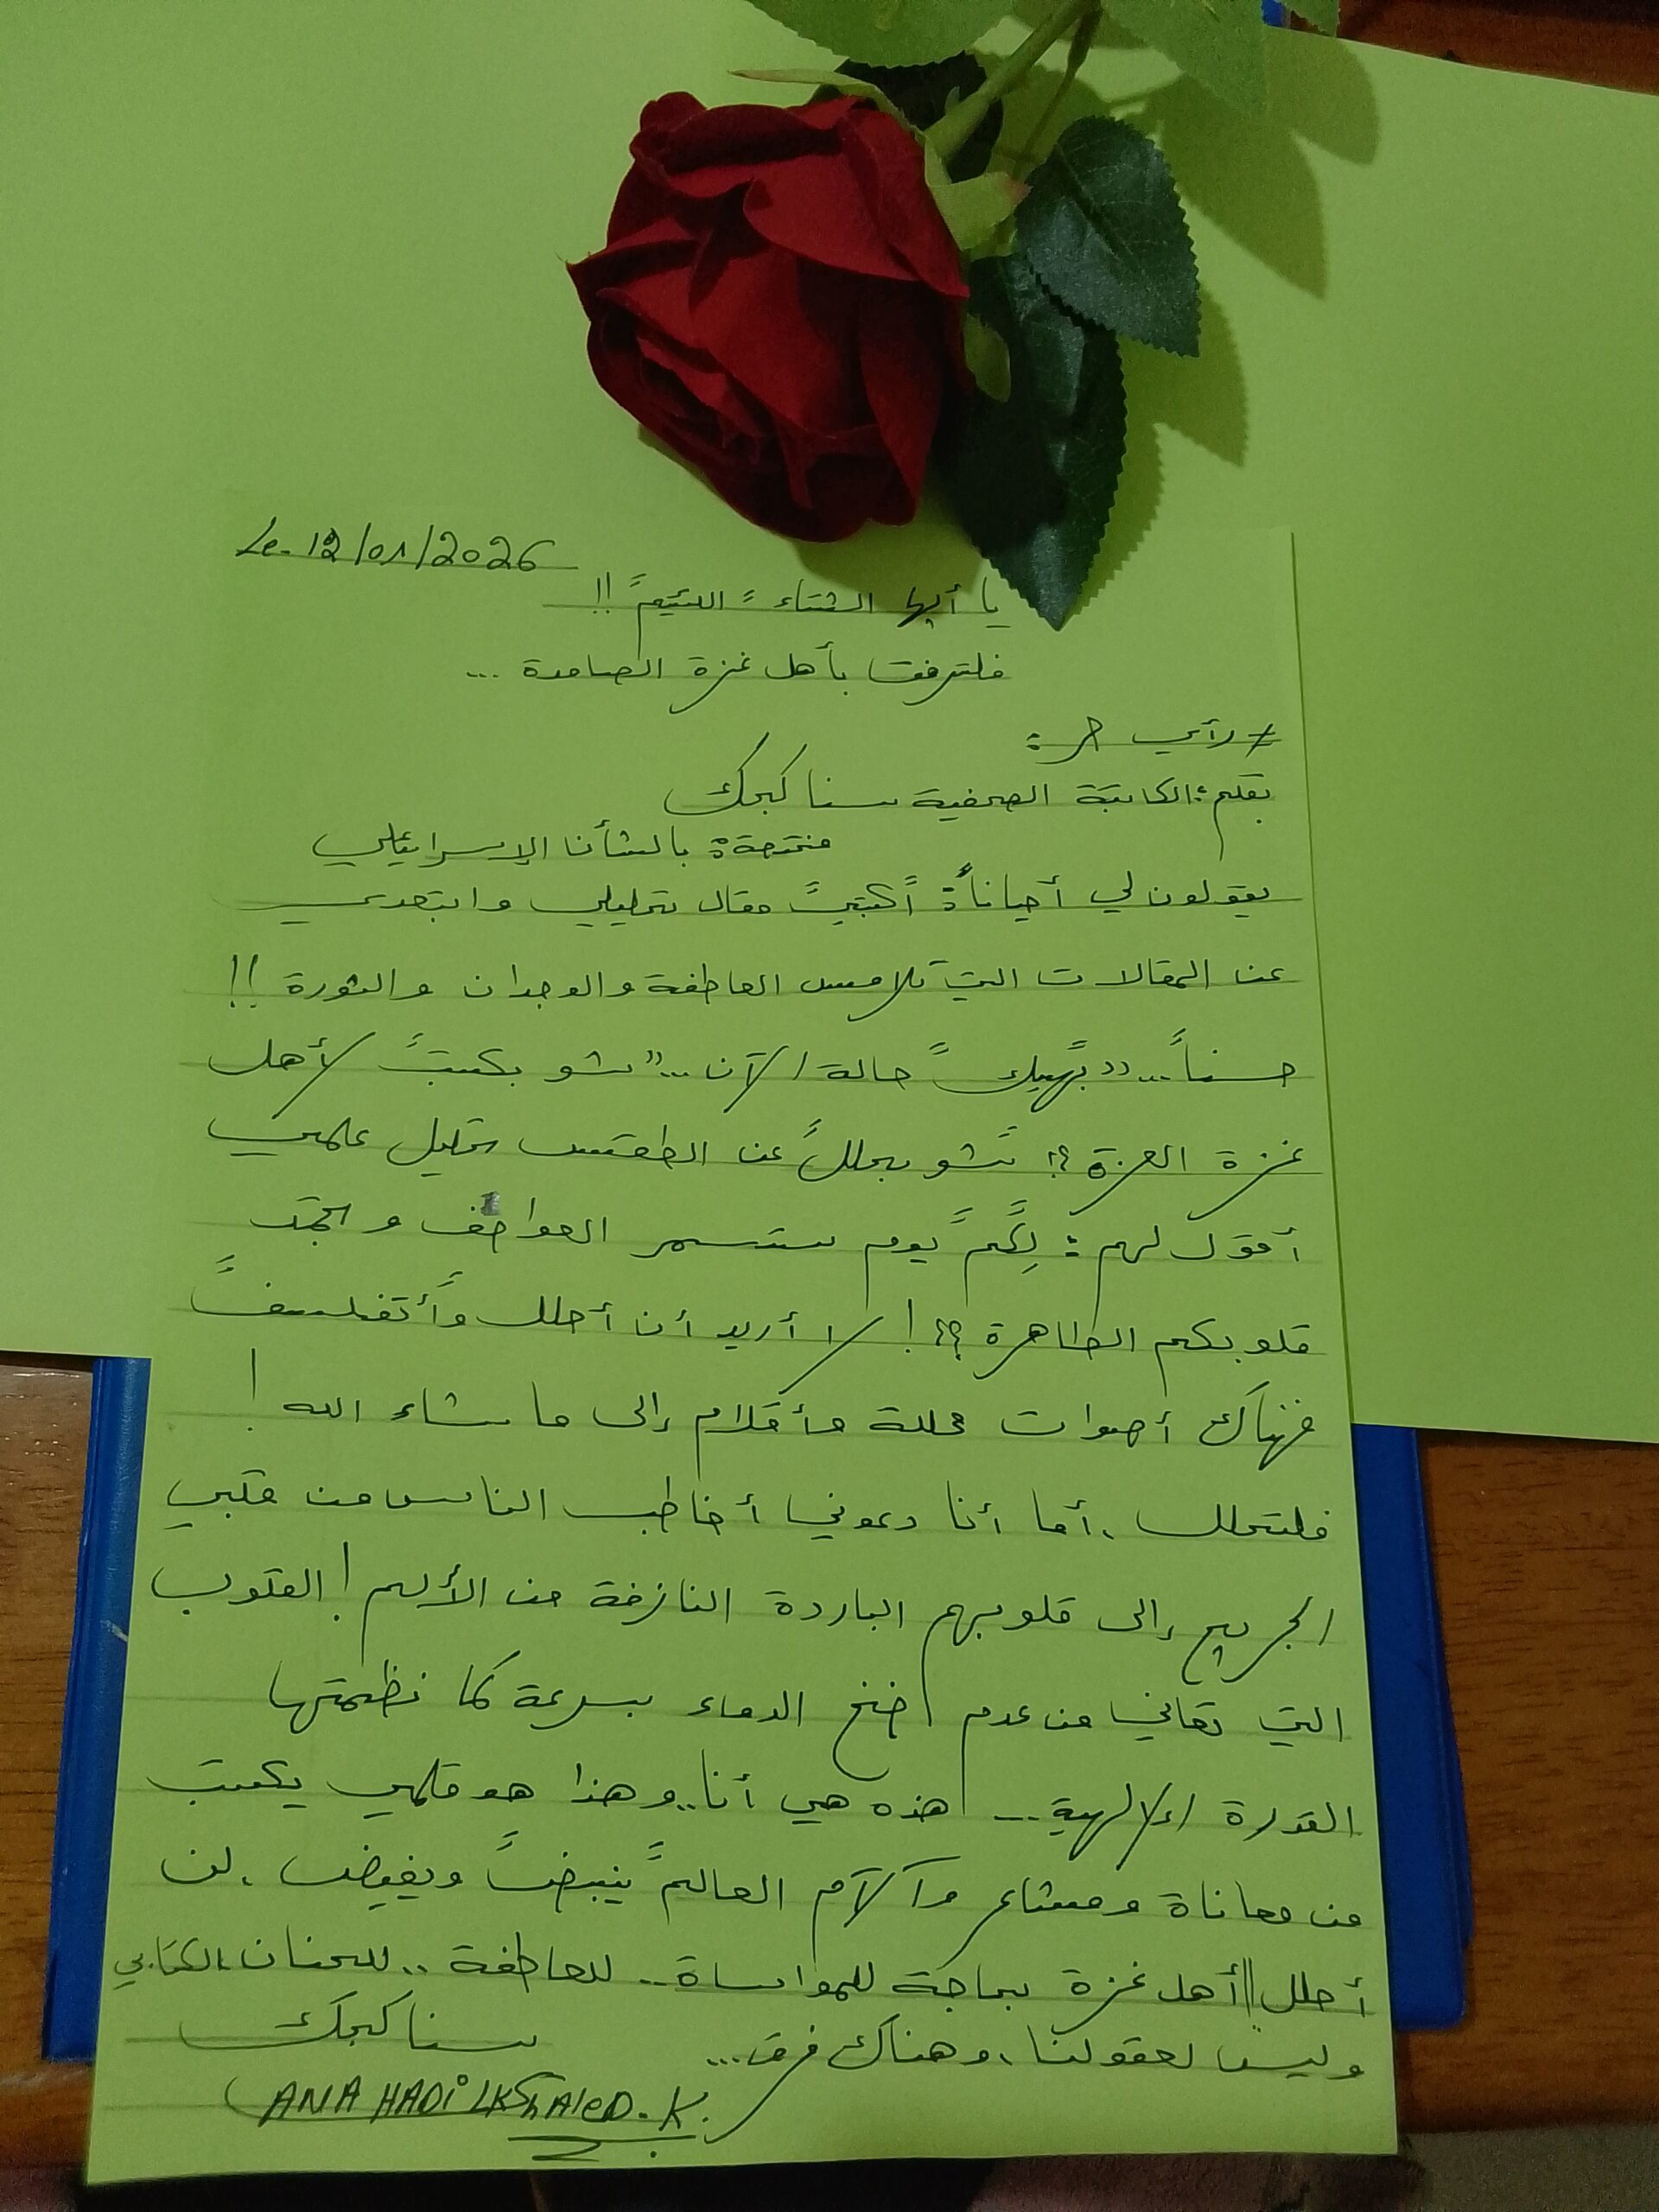 Le. 12/01/2026
يا أيها الشتاء " اللئيم " !!
فلترفق بأهل غزة الصامدة ...
# رأي حر :
بقلم : الكاتبة الصحفية سنا كجك
مختصة بالشأن الإسرائيلي
يقولون لي أحياناً : " أكتبي " مقال تحليلي وابتعدي
عن المقالات التي تلامس العاطفة والوجدان والثورة !!
حسناً ... " بهيك " حالة الآن ... " شو بكتب " لأهل
غزة العزة ؟! " شو بحلل " عن الطقس تحليل علمي
أقول لهم : " لكم " يوم ستسمر العواصف و تجمد
قلوبكم الطاهرة ؟؟! لا أريد أن أحلل و " أتفلسف "
فهناك أصوات محللة وأقلام إلى ما شاء الله !
فلتحلل ، أما أنا دعوني أخاطب الناس من قلبي
الجريح إلى قلوبهم الباردة النازفة من الألم ! القلوب
التي تعاني من عدم ضخ الدماء بسرعة كما نظمتها
القدرة الإلهية ... هذه هي أنا .. وهذا هو قلمي يكتب
من معاناة ومشاعر وآلام العالم " ينبض " ويفيض ، لن
أحلل || أهل غزة بحاجة للمواساة .. للعاطفة .. للحنان ، الكتابي
وليس لعقولنا ، وهناك فرق ...
سنا كجك
ANA HADI LKHALED. K.